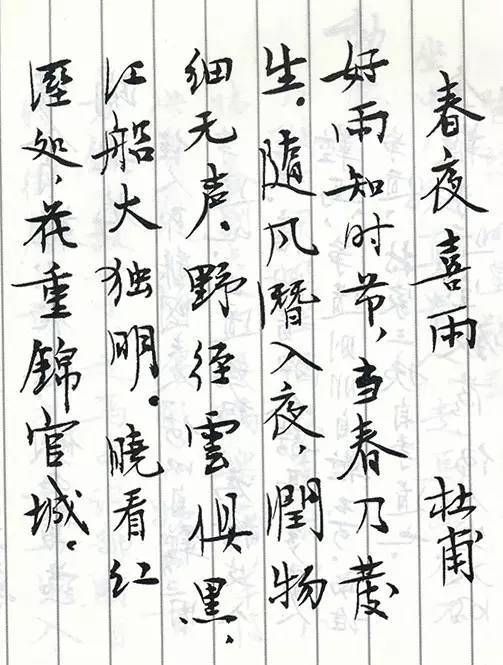 春夜喜雨 杜甫
好雨知时节，当春乃發
生。随风潛入夜，潤物
细无声。野径雲俱黑，
江船火独明。曉看红
溼处，花重錦官城。